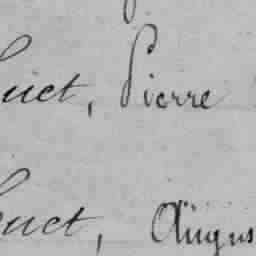 uet, Pierre
uet, Augus